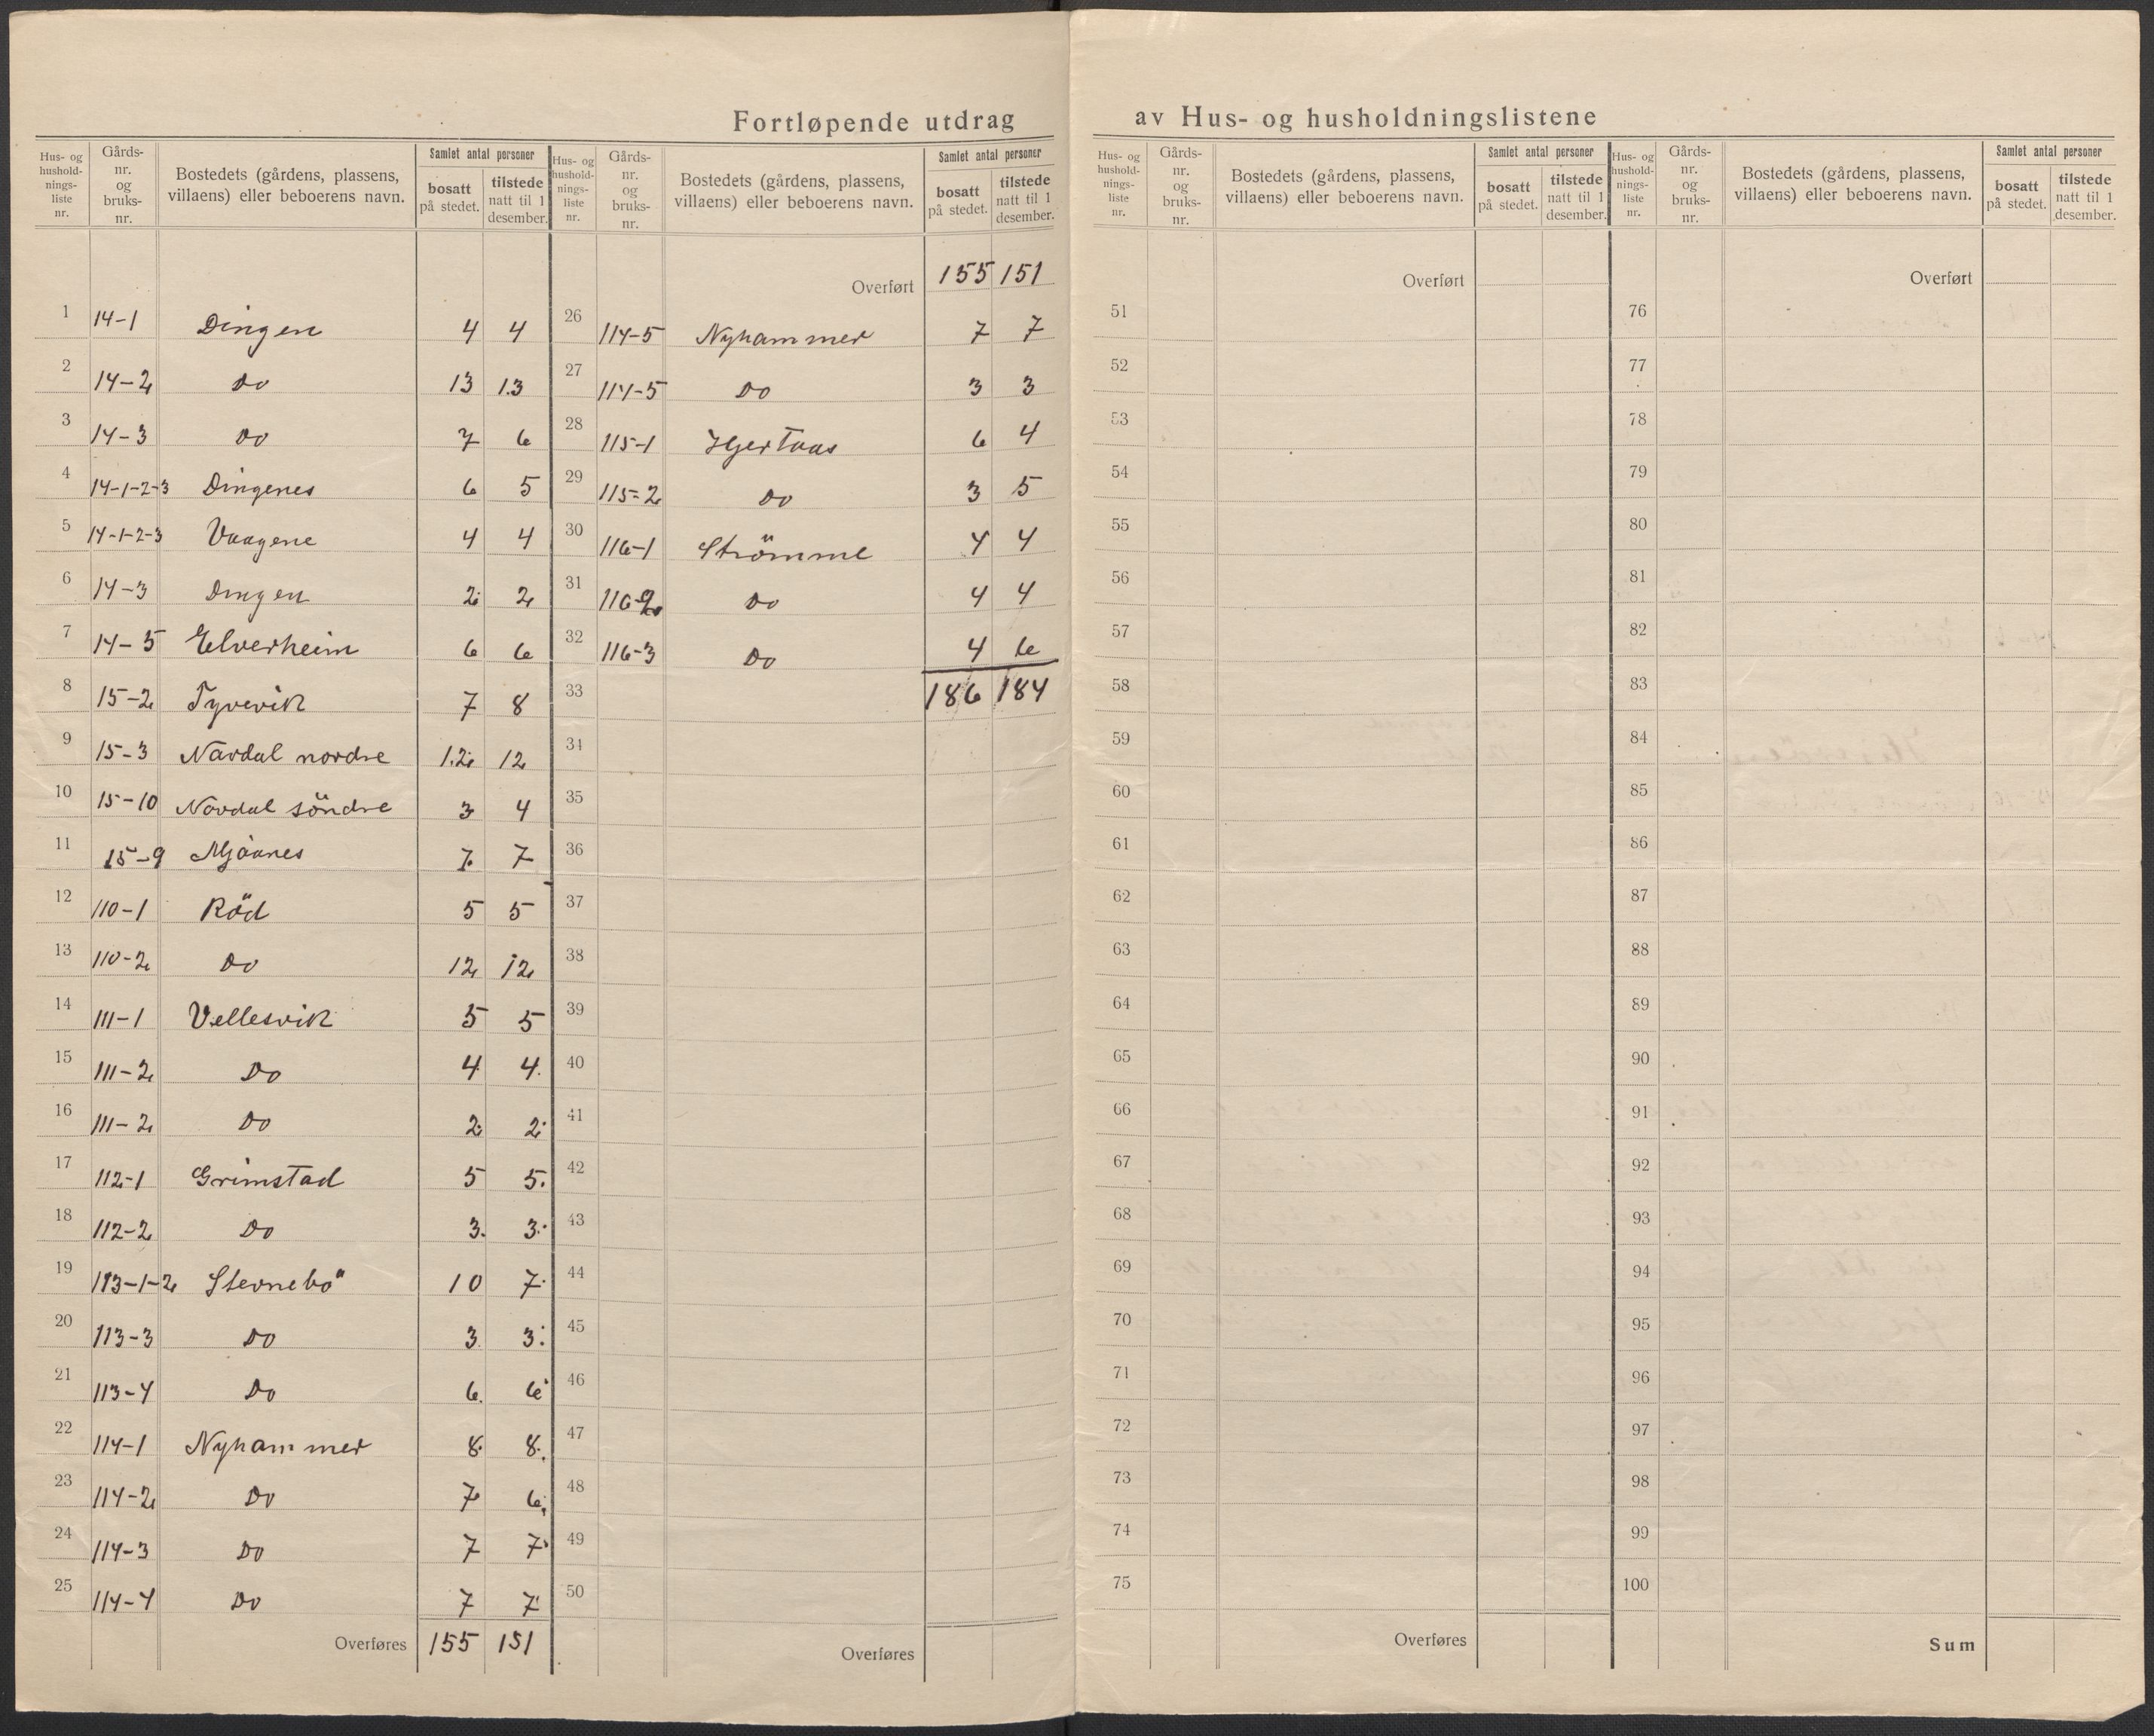 Fortløpende utdrag av Hus- og husholdningslistene
Hus- og hushold-nings-liste nr. Gårds-nr. og bruks-nr. Bostedets (gårdens, plassens, villaens) eller beboerens navn. Samlet antal personer bosatt på stedet. tilstede natt til 1 desember.
1 14-1 Dingen 4 4
2 14-2 Do 13 13
3 14-3 Do 7 6
4 14-1-2-3 Dingenes 6 5
5 14-1-2-3 Vaagene 4 4
6 14-3 Dingen 2 2
7 14-5 Elverheim 6 6
8 15-2 Tyvevik 7 8
9 15-3 Nävdal nordre 12 12
10 15-10 Növdal söndre 3 4
11 15-9 Mjåanes 7 7
12 110-1 Röd 5 5
13 110-2 Do 12 12
14 111-1 Vellesvik 5 5
15 111-2 Do 4 4
16 111-2 Do 2 2
17 112-1 Grimstad 5 5
18 112-2 Do 3 3
19 113-1-2 Stevnebö 10 7
20 113-3 Do 3 3
21 113-4 Do 6 6
22 114-1 Nyhammer 8 8
23 114-2 Do 7 6
24 114-3 Do 7 7
25 114-4 Do 7 7
Overføres 155 151
Hus- og hushold-nings-liste nr. Gårds-nr. og bruks-nr. Bostedets (gårdens, plassens, villaens) eller beboerens navn. Samlet antal personer bosatt på stedet. tilstede natt til 1 desember.
Overført 155 151
26 114-5 Nyhammer 7 7
27 114-5 Do 3 3
28 115-1 Hjertaas 6 4
29 115-2 Do 3 5
30 116-1 Strömme 4 4
31 116-2 Do 4 4
32 116-3 Do 4 6
33 186 184
34
35
36
37
38
39
40
41
42
43
44
45
46
47
48
49
50
Overføres
Hus- og hushold-nings-liste nr. Gårds-nr. og bruks-nr. Bostedets (gårdens, plassens, villaens) eller beboerens navn. Samlet antal personer bosatt på stedet. tilstede natt til 1 desember.
Overført
51
52
53
54
55
56
57
58
59
60
61
62
63
64
65
66
67
68
69
70
71
72
73
74
75
Overføres
Hus- og hushold-nings-liste nr. Gårds-nr. og bruks-nr. Bostedets (gårdens, plassens, villaens) eller beboerens navn. Samlet antal personer bosatt på stedet. tilstede natt til 1 desember.
Overført
76
77
78
79
80
81
82
83
84
85
86
87
88
89
90
91
92
93
94
95
96
97
98
99
100
Sum